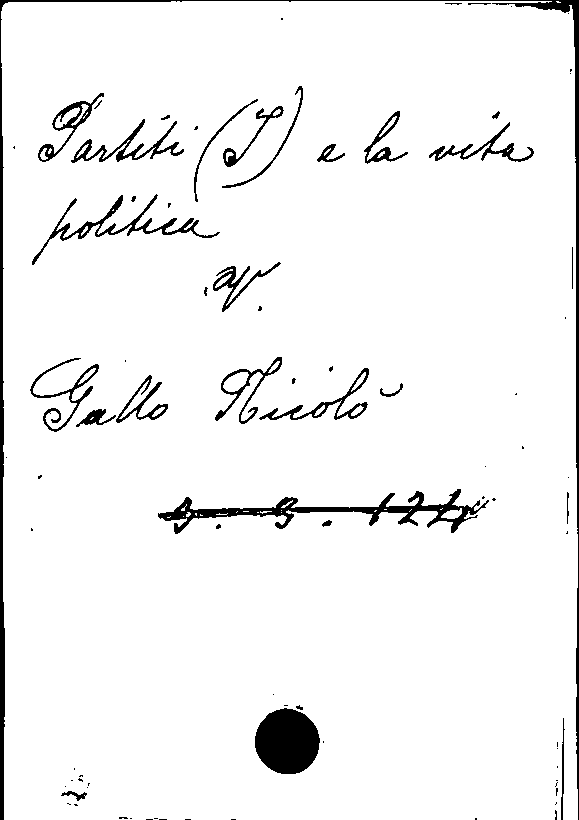 Partiti (I) e la vita
politica
v.
Gallo Nicolò